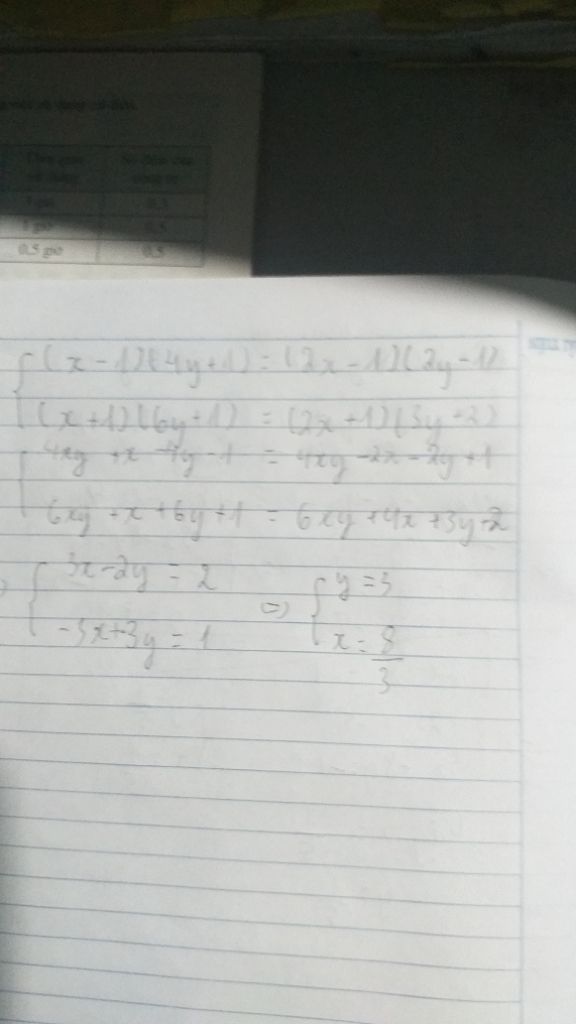 0.5 giờ 0.5
(x-1)(4y+1) = (2x-1)(2y-1)
(x+1)(6y+1) = (2x+1)(3y+2)
4xy + x - 4y - 1 = 4xy - 2x - 2y + 1
6xy + x + 6y + 1 = 6xy + 4x + 3y + 2
3x - 2y = 2 => { y = 3
-3x + 3y = 1 x = 8/3